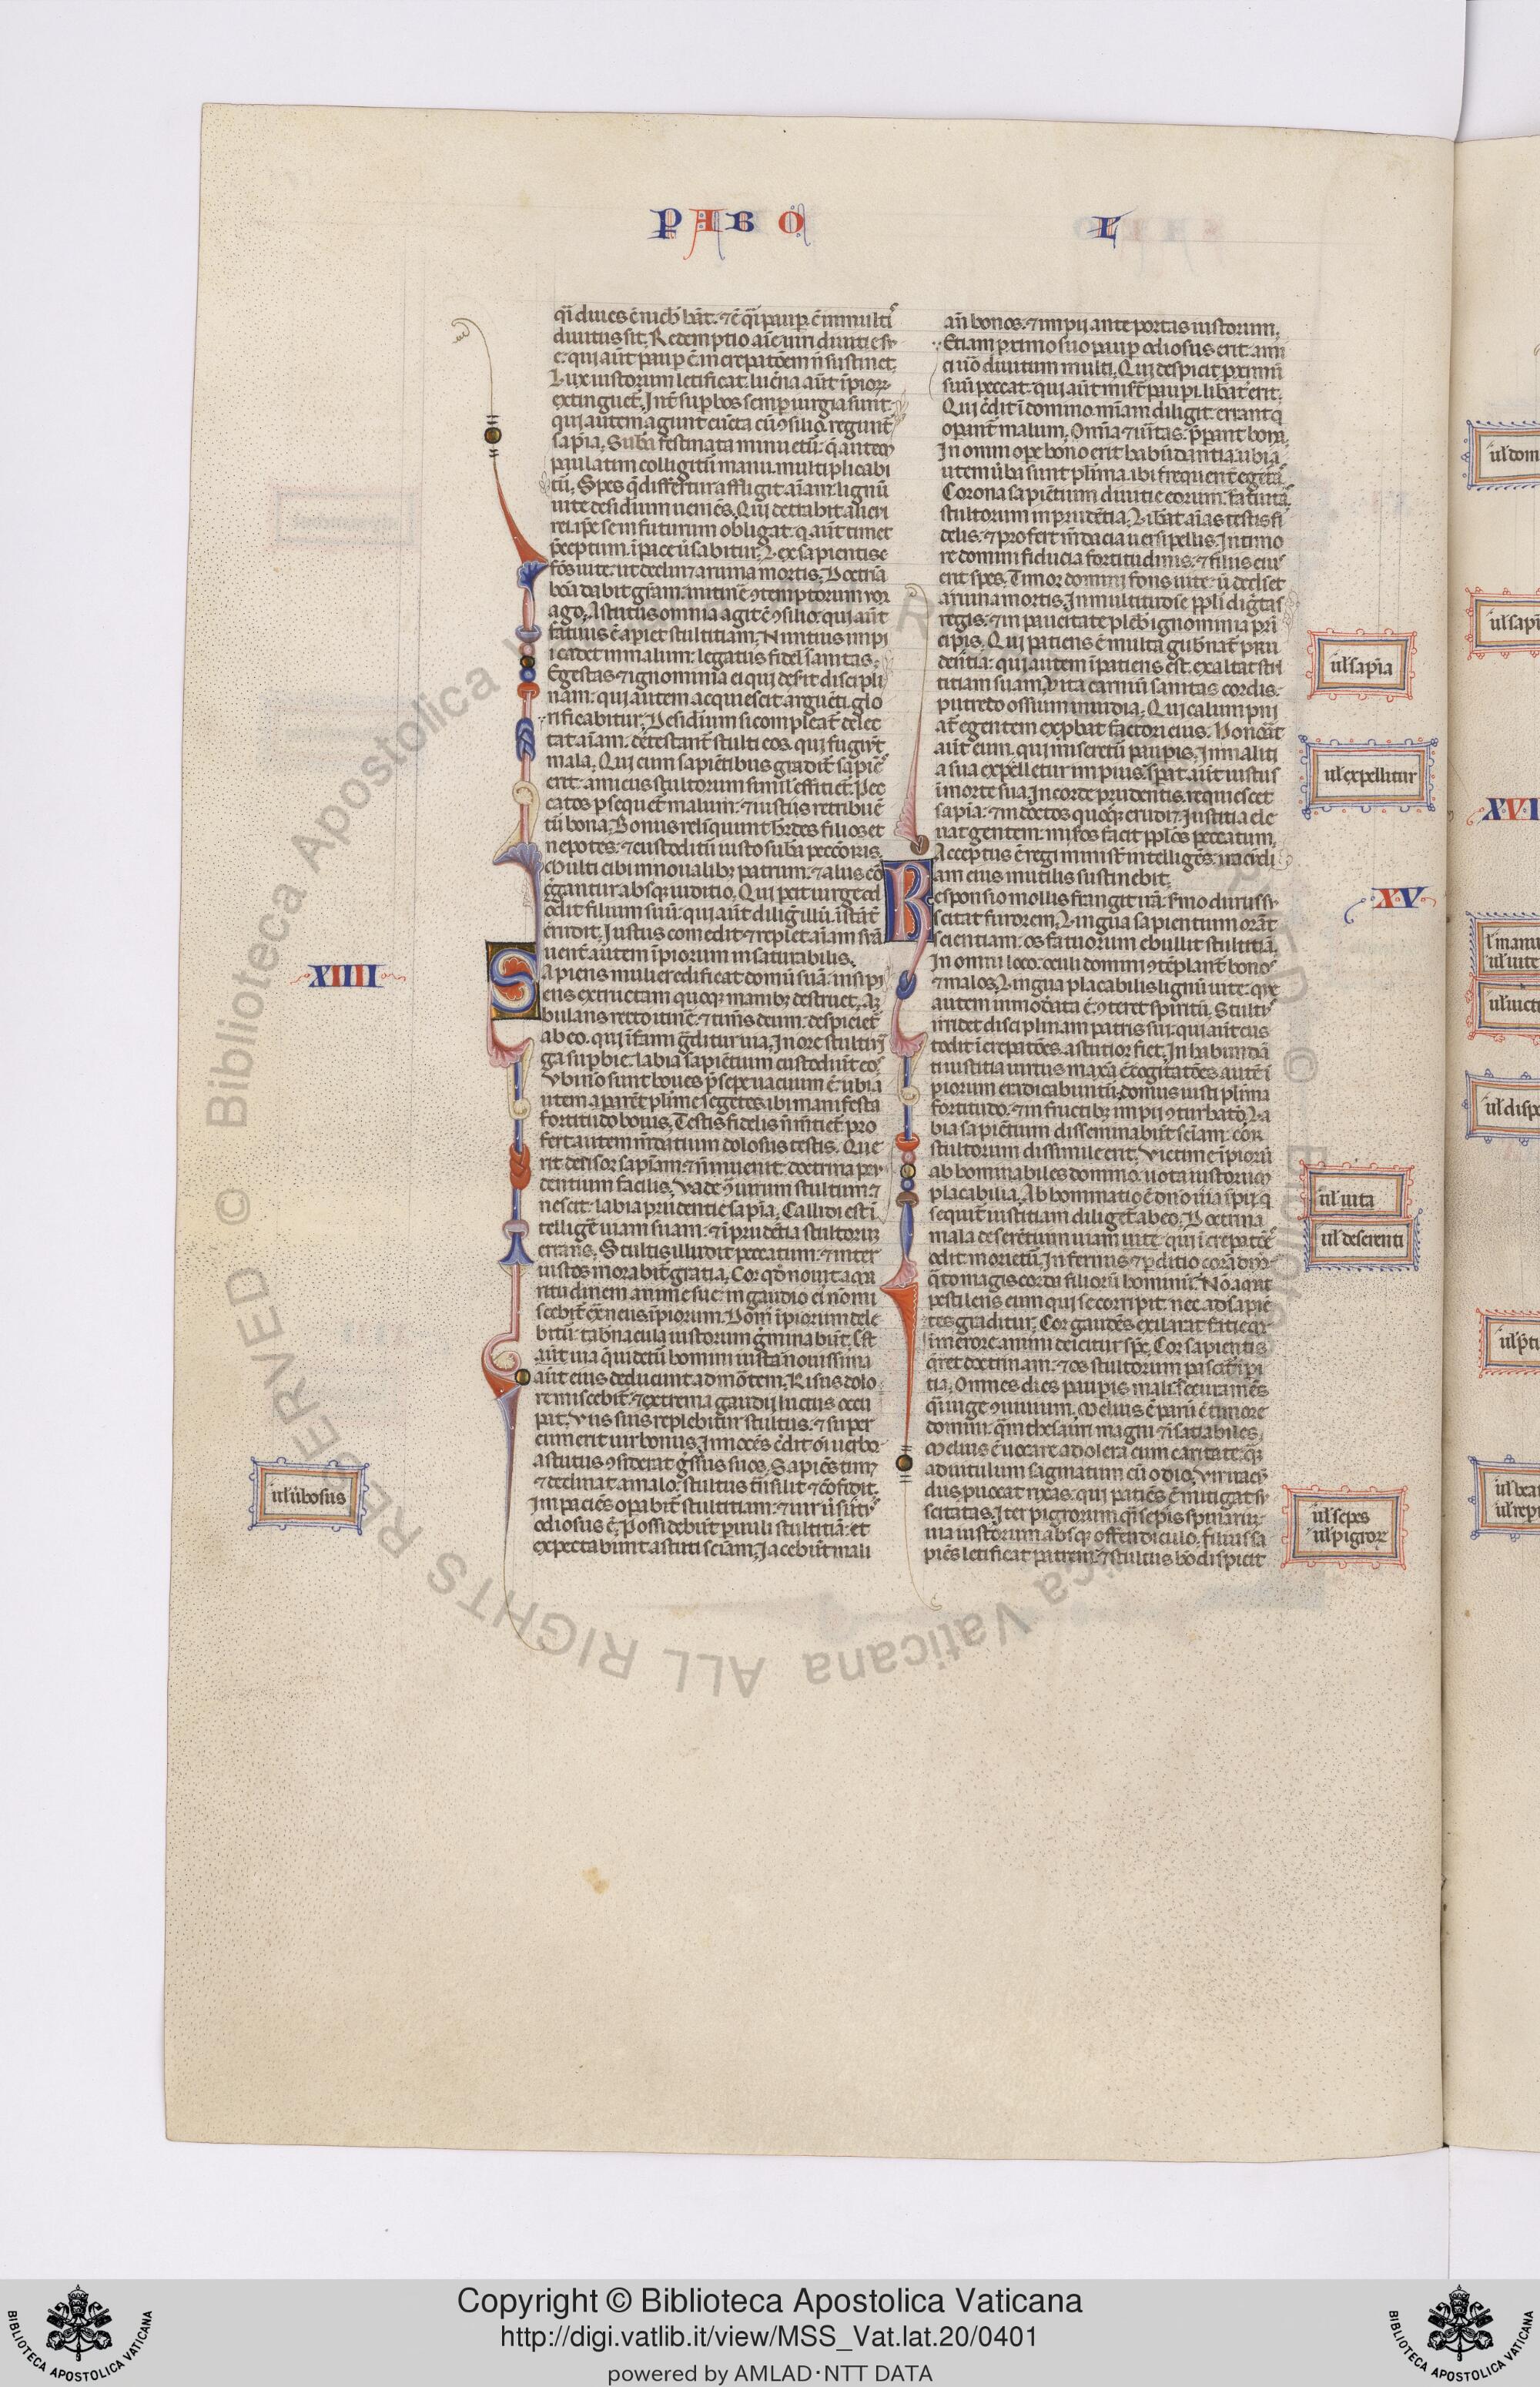 PABO L
qi diues ē nich' hāt. ⁊ ē qi paup. ē in multis
diuitiis sit. Redemptio aīe uiri diuitie su
e. qui aūt paup ē increpatōem ñ sustinet.
Lux iustorum letificat. lucna aūt ipior
extinguet. Int supbos semp iurgia sunt.
qui autem agunt cuncta cū ꝯsilio regunt
sapia. Suba festinata minuetur. q autem
paulatim colligitur manu multiplicabi
tur. Spes q differtur affligit aīam. lignū
uite desidium ueniens. Qui detrahit alicui
rei. ipse se in futurum obligat. q aūt timet
preceptum. in pace ūsabitur. Lex sapientis e
fons uite. ut declinet a ruina mortis. Doctrina
bona dabit gram. in itine ꝯtemptorum uor
ago. Astutus omnia agit cū ꝯsilio. qui aūt
fatuus ē apiet stultitiam. Nuntius impi
i cadet in malum. legatus fidel' sanitas.
Egestas ⁊ ignominia ei qui deserit discipli
nam. qui autem acquiescit arguenti glo
rificabitur. Desidium si compleat delec
tat aīam. detestant stulti eos qui fugiunt
mala. Qui cum sapientibus gradit sapiens
erit. amicus stultorum simil' efficiet. Pec
catores psequet malum. ⁊ iustis retribuen
tur bona. Bonus relinquit hedes filios et
nepotes. ⁊ custoditur iusto suba peccoris.
Multi cibi in noualibꝫ patrum. ⁊ aliis cō
gregantur absqꝫ iuditio. Qui pcit uirge od
odit filium suū. qui aūt diligit illū. instāt
erudit. Iustus comedit ⁊ replet aīam suā
uenter autem impiorum insaturabilis.
XIIII
Sapiens mulier edificat domū suā. insipi
ens extructam quoqꝫ manibꝫ destruet. Am
bulans recto itine. ⁊ timens deum. despicietur
ab eo. qui infami graditur uia. In ore stulti uir
ga supbie. labia sapientium custodiūt eos.
Vbi nō sunt boues psepe uacuum ē. ubi a
utem aparent plurime segetes ibi manifesta
fortitudo bouis. Testis fidelis ñ mentiet. pro
fert autem mendatium dolosus testis. Que
rit derisor sapiam. ⁊ ñ inuenit. doctrina pru
dentium facilis. Vade ꝯ uirum stultum. ⁊
nescit labia prudentie. sapia. Callidi est in
telligere uiam suam. ⁊ imprudentia stultorum
errans. Stultis illudit peccatum. ⁊ inter
iustos morabit gratia. Cor qd nouit ama
ritudinem anime sue. in gaudio ei nō mi
scebit exneus. ipiorum. Dom' ipiorum dele
bitur. tabnacula iustorum gminabūt. Est
aūt uia q uidetur homini iusta. nouissima
aūt eius deducunt ad mortem. Risus dolo
re miscebit. ⁊ extrema gaudii luctus occu
pat. Viis suis replebitur stultus. ⁊ super
eum erit uir bonus. Innocens credit oī uerbo.
astutus ꝯsiderat gssus suos. Sapiēs timet
⁊ declinat a malo. stultus transilit ⁊ cōfidit.
Impaciēs opabit stultitiam. ⁊ uir uersutus
odiosus ē. Possidebūt paruuli stultitiā. et
expectabunt astuti sciam. Iacebūt mali
ul' ūbosus
an bonos. ⁊ impii ante portas iustorum.
Etiam proximo suo paup odiosus erit. ami
ci uō diuitum multi. Qui despicit proximū
suū peccat. qui aūt miset paupi. beatus erit.
Qui credit in domino. miam diligit. errant q
opant malum. Mia ⁊ ueritas. prepant bona.
In omni ope bono erit habūdantia. ubi a
utem ūba sunt plima. ibi frequent egestas.
Corona sapientium diuitie eorum. fatuitas
stultorum imprudētia. Libat aīas testis fi
delis. ⁊ profert mendacia uersipellis. In timo
re domini fiducia fortitudinis. ⁊ filiis eius
erit spes. Timor domini fons uite. ut declinet
a ruina mortis. In multitudine ppli dignitas
regis. ⁊ in paucitate plebis ignominia prin
cipis. Qui patiens ē multa gubnat pru
dentia. qui autem impatiens est. exaltat stul
titiam suam. Vita carniū sanitas cordis.
putredo ossium inuidia. Qui calumpni
at egentem exprobat factori eius. Honorat
aūt eum. qui miseretur paupis. In maliti
a sua expelletur impius. sperat aūt iustus
in morte sua. In corde prudentis requiescet
sapia. ⁊ indoctos quoqꝫ erudiet. Iustitia ele
uat gentem. misos facit pplos peccatum.
Acceptus ē regi minist intelligēs. iracūdi
am eius inutilis sustinebit.
ul' sapia
ul' expellitur
XV
Responsio mollis frangit irā. smo durus su
scitat furorem. Lingua sapientium ornat
scientiam. os fatuorum ebullit stultitiā.
In omni loco oculi domini ꝯtēplant bonos
⁊ malos. Lingua placabilis lignū uite. que
autem inmodata ē. ꝯteret spiritū. Stultus
irridet disciplinam patris sui. qui aūt cus
todit increpatōes astutior fiet. In habundā
ti iustitia uirtus maxia ē. cogitatōes autē im
piorum eradicabuntur. Domus iusti plima
fortitudo. ⁊ in fructibꝫ impii ꝯturbatō. La
bia sapientium disseminabūt sciam. cor
stultorum dissimile erit. Victime ipiorū
abhominabiles domino. uota iustorum
placabilia. Abhominatio ē dno uia ipii. q
sequit iustitiam diliget ab eo. Doctrina
mala deserentium uiam uite. qui increpatōes
odit morietur. Infernus ⁊ pditio corā dno
qnto magis corda filiorū hominū. Nō amat
pestilens eum qui se corripit. nec ad sapien
tes graditur. Cor gaudēs exilarat faciem
in merore animi deicitur spc. Cor sapientis
qret doctrinam. ⁊ os stultorum pascit imperi
tia. Omnes dies pauperis mali. secura mēs
qi iuge ꝯuiuium. Melius ē parū cū timore
domini. qm thesauri magni ⁊ insatiabiles.
Melius ē uocare ad olera cum caritate. qm
ad uitulum saginatum cū odio. Vir iracū
dus puocat rixas. qui patiēs ē mitigat su
scitatas. Iter pigrorum qi sepis spinarum.
uia iustorum absqꝫ offendiculo. Filius sa
piēs letificat patrem. ⁊ stultus ho dispicit
ul' uita
ul' deserenti
ul' sepes
ul' pigror
ul' dom
ul' sapi
XVI
l' manu
ul' uite
ul' disp
Copyright © Biblioteca Apostolica Vaticana
http://digi.vatlib.it/view/MSS_Vat.lat.20/0401
powered by AMLAD·NTT DATA
BIBLIOTECA APOSTOLICA VATICANA
BIBLIOTECA APOSTOLICA VATICANA